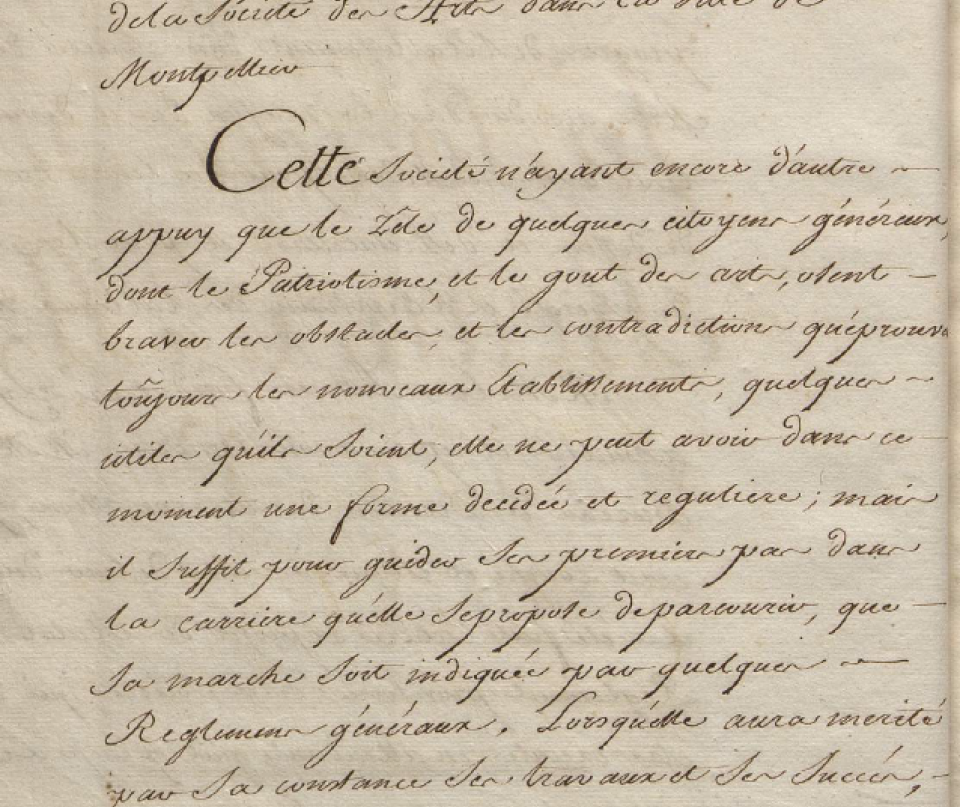 de la Société des Arts dans la ville de
Montpellier
Cette Société n'ayant encore d'autre
appuy que le Zéle de quelques citoyens généreux,
dont le Patriotisme, et le gout des arts, osent
braver les obstacles, et les contradictions qu'éprouv
toûjours les nouveaux Etablissements, quelques
utiles qu'ils soient, elle ne peut avoir dans ce
moment une forme decidée et reguliere; mais
il suffit pour guider ses premiers pas dans
la carriere qu'elle se propose de parcourir, que
sa marche soit indiquée par quelques
Reglemens généraux. Lorsqu'elle aura merité
par sa constance ses travaux et ses succés,